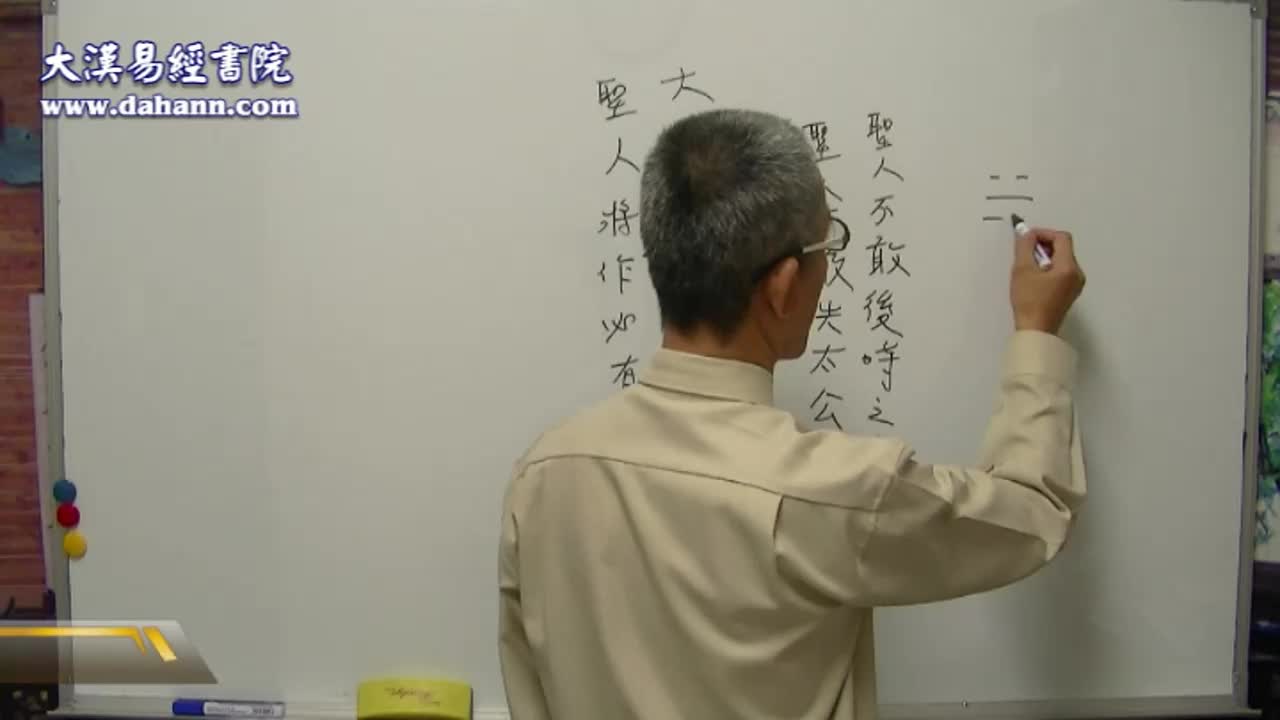 大漢易經書院
www.dahann.com
聖人不敢後時之
聖人失太公
大
聖人將作必有